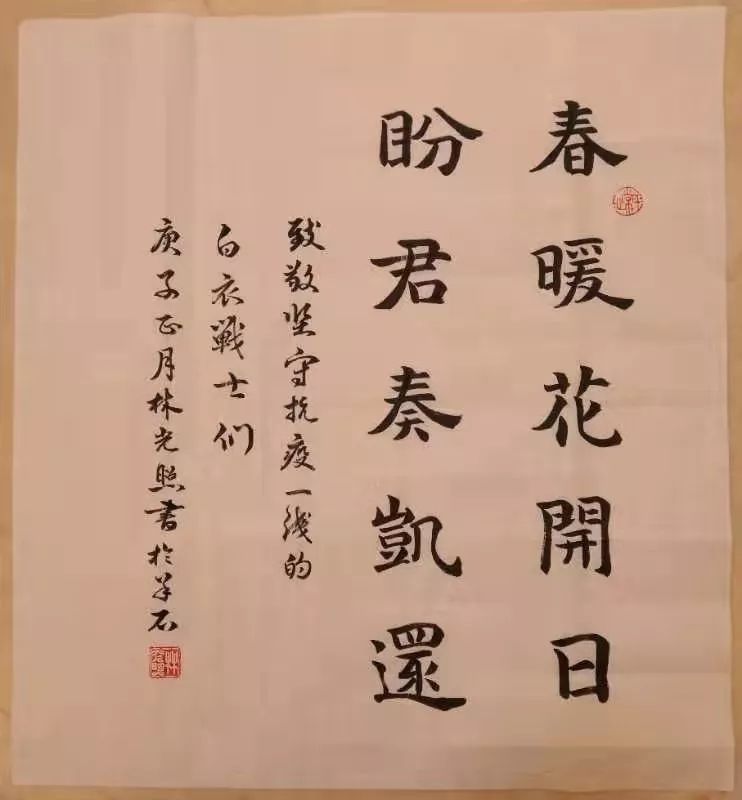 春暖花開日
盼君奏凱還
致敬坚守抗疫一线的
白衣戰士们
庚子正月林光照書於羊石